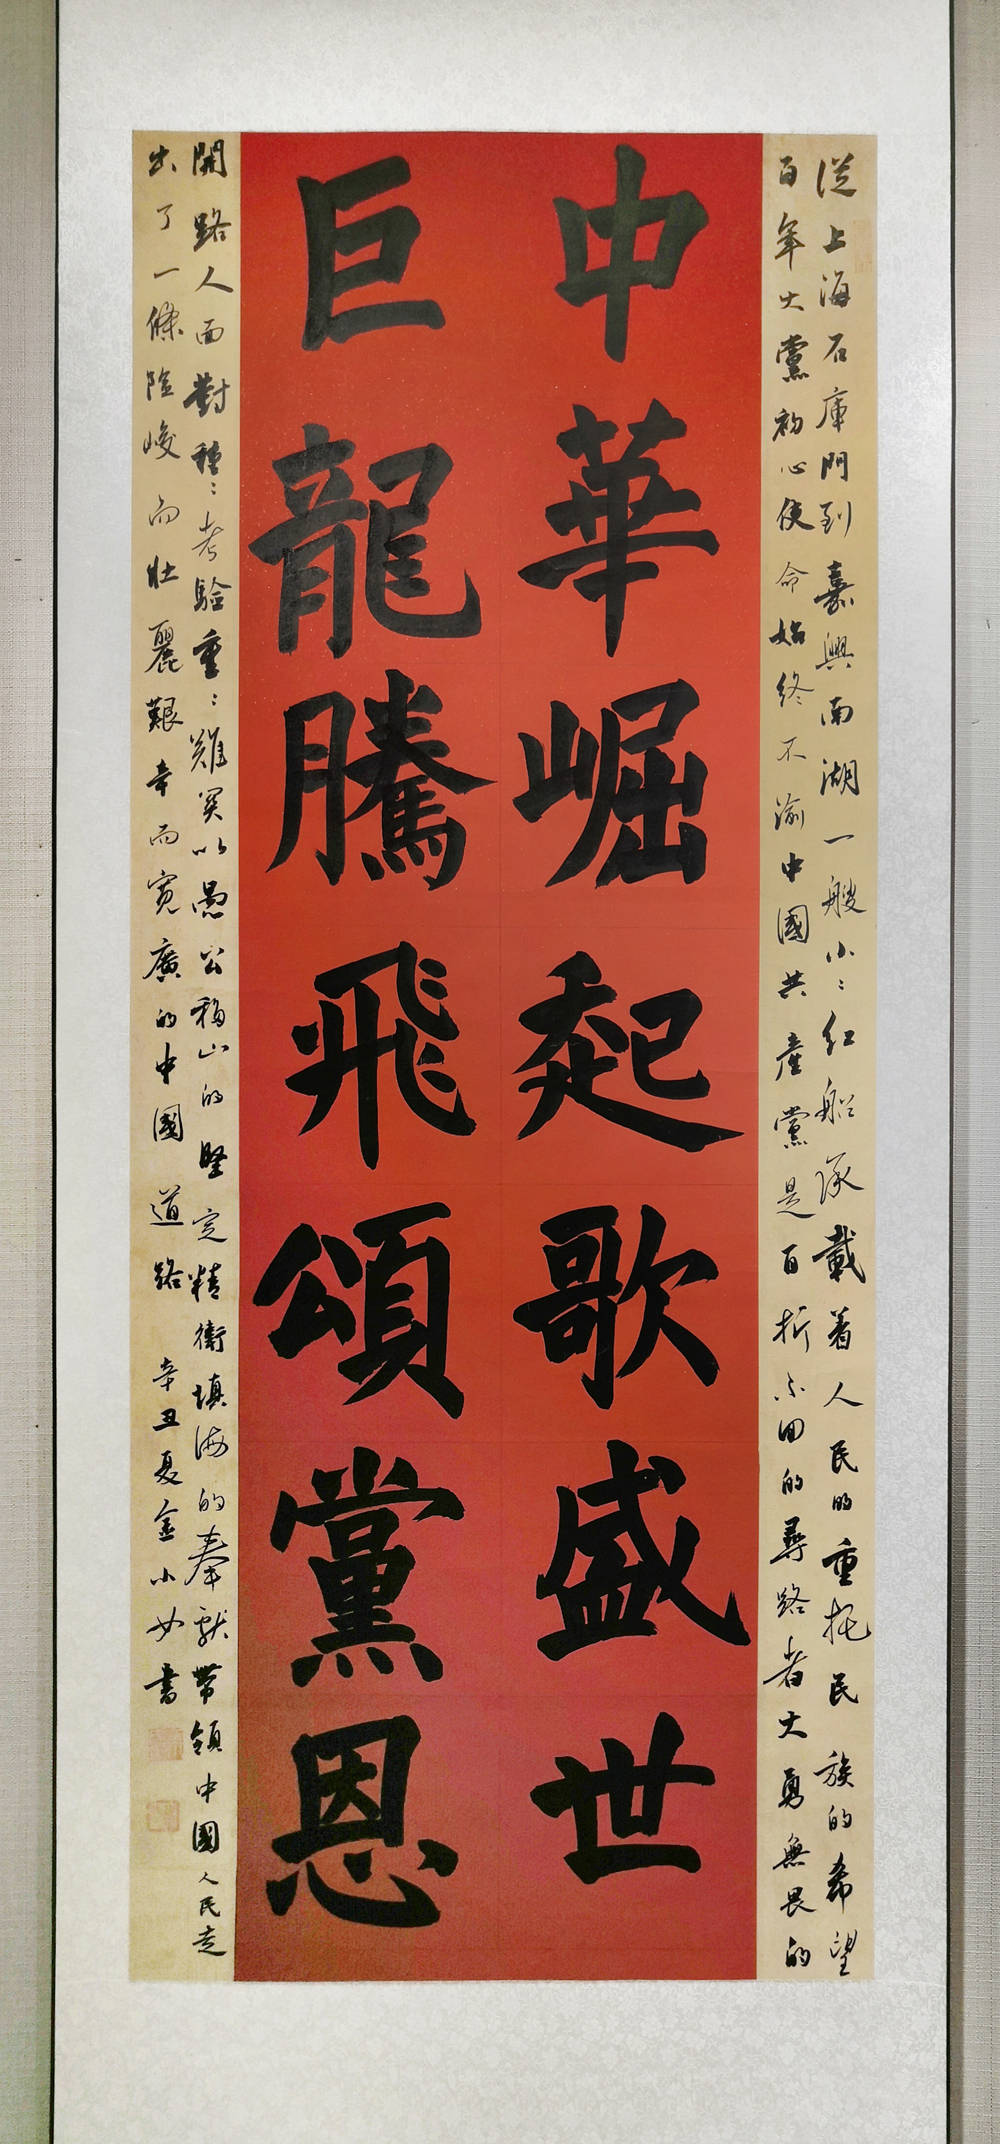 從上海石庫門到嘉興南湖一艘小：紅船承載着人民的重托民族的希望
百年大黨初心使命始終不渝中國共產黨是百折不回的尋路者大勇無畏的
中華崛起歌盛世
巨龍騰飛頌黨恩
開路人面對種：考驗重：難関以愚公移山的堅定精衛填海的奉獻帶領中國人民走
出了一條險峻而壯麗艱辛而寬廣的中國道路 辛丑夏金小女書